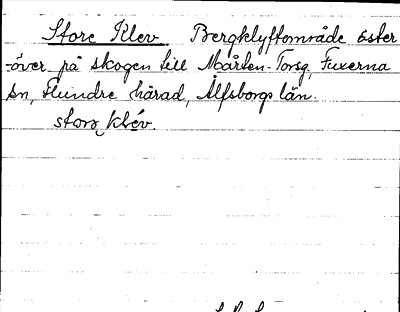 Store Klev Bergklyftområde öster
-över på skogen till Mårten-Torsg, Fuxerna
sn, Flundre härad, Älfsborgs län.